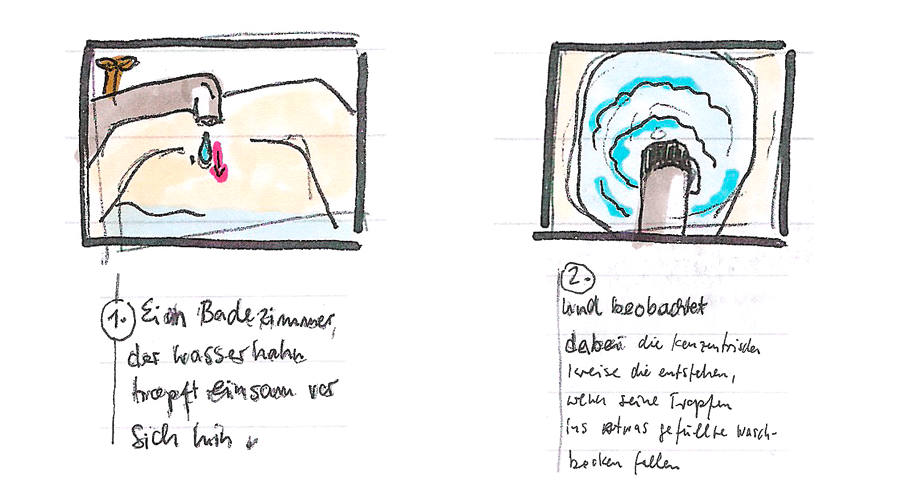 1. Ein Badezimmer,
der Wasserhahn
tropft einsam vor
sich hin
2.
und beobachtet
dabei die konzentrischen
Kreise die entstehen,
wenn seine Tropfen
ins etwas gefüllte Wasch-
becken fallen